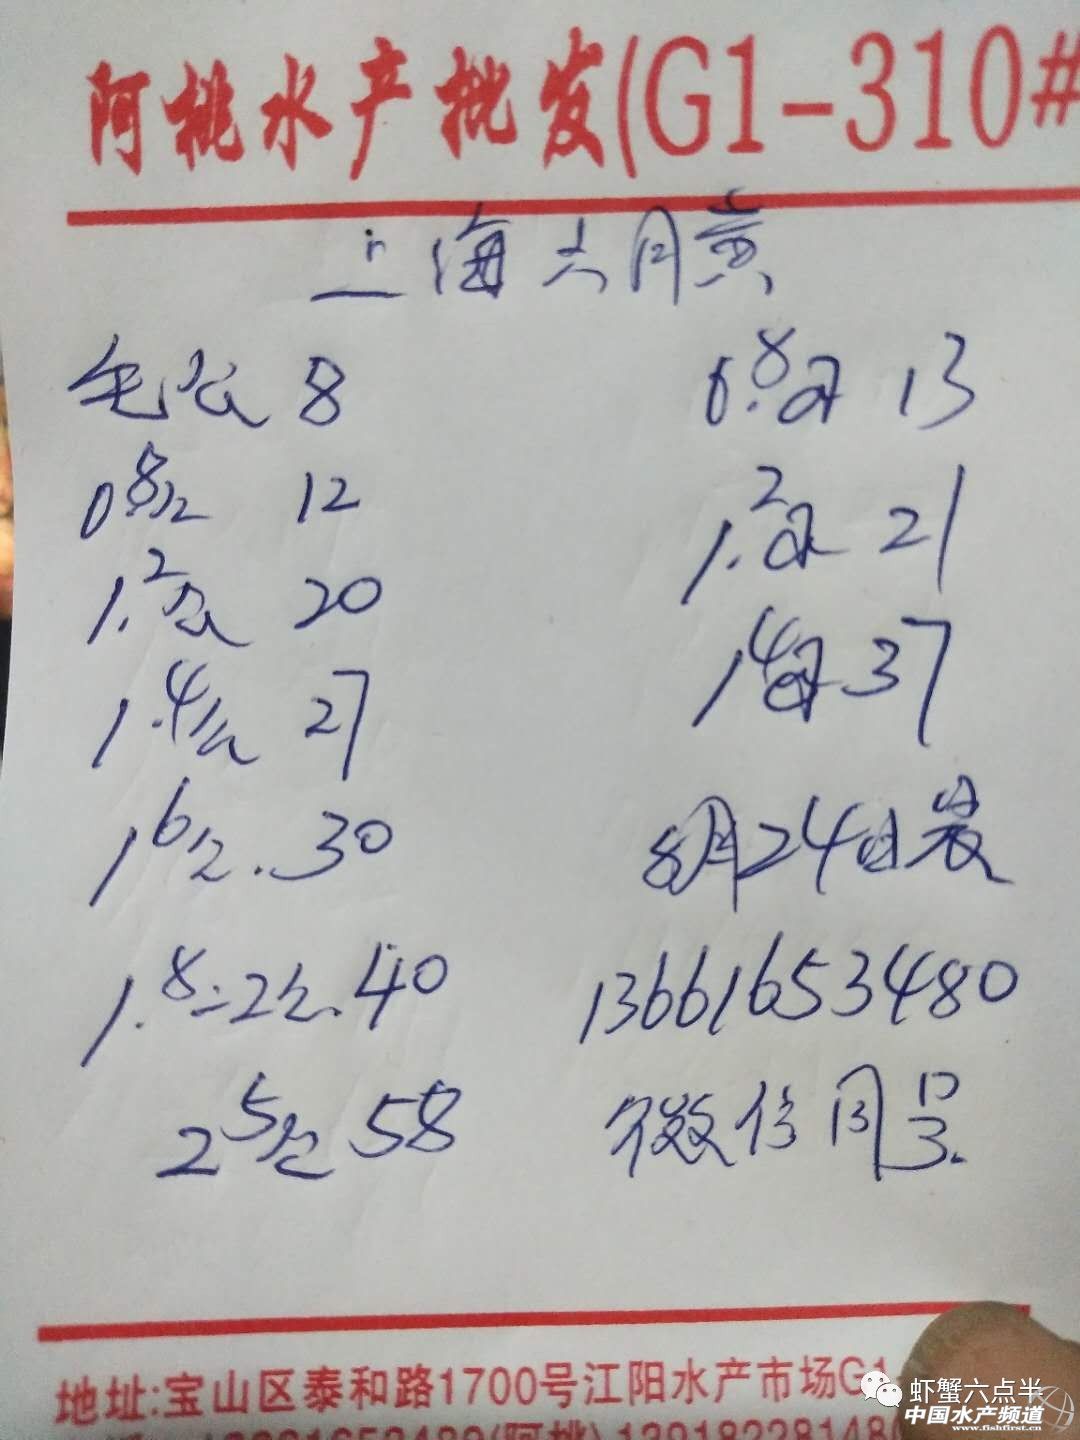 阿桃水产批发(G1-310#
上海六月黄
毛公 8
0.8公 12
1.2公 20
1.4公 27
1.6公.30
1.8-2公.40
2.5公 58
0.8母 13
1.2母 21
1.4母 37
8月24日发
13661653480
微信同号.
地址:宝山区泰和路1700号江阳水产市场G1
虾蟹六点半
中国水产频道
www.fishfirst.cn